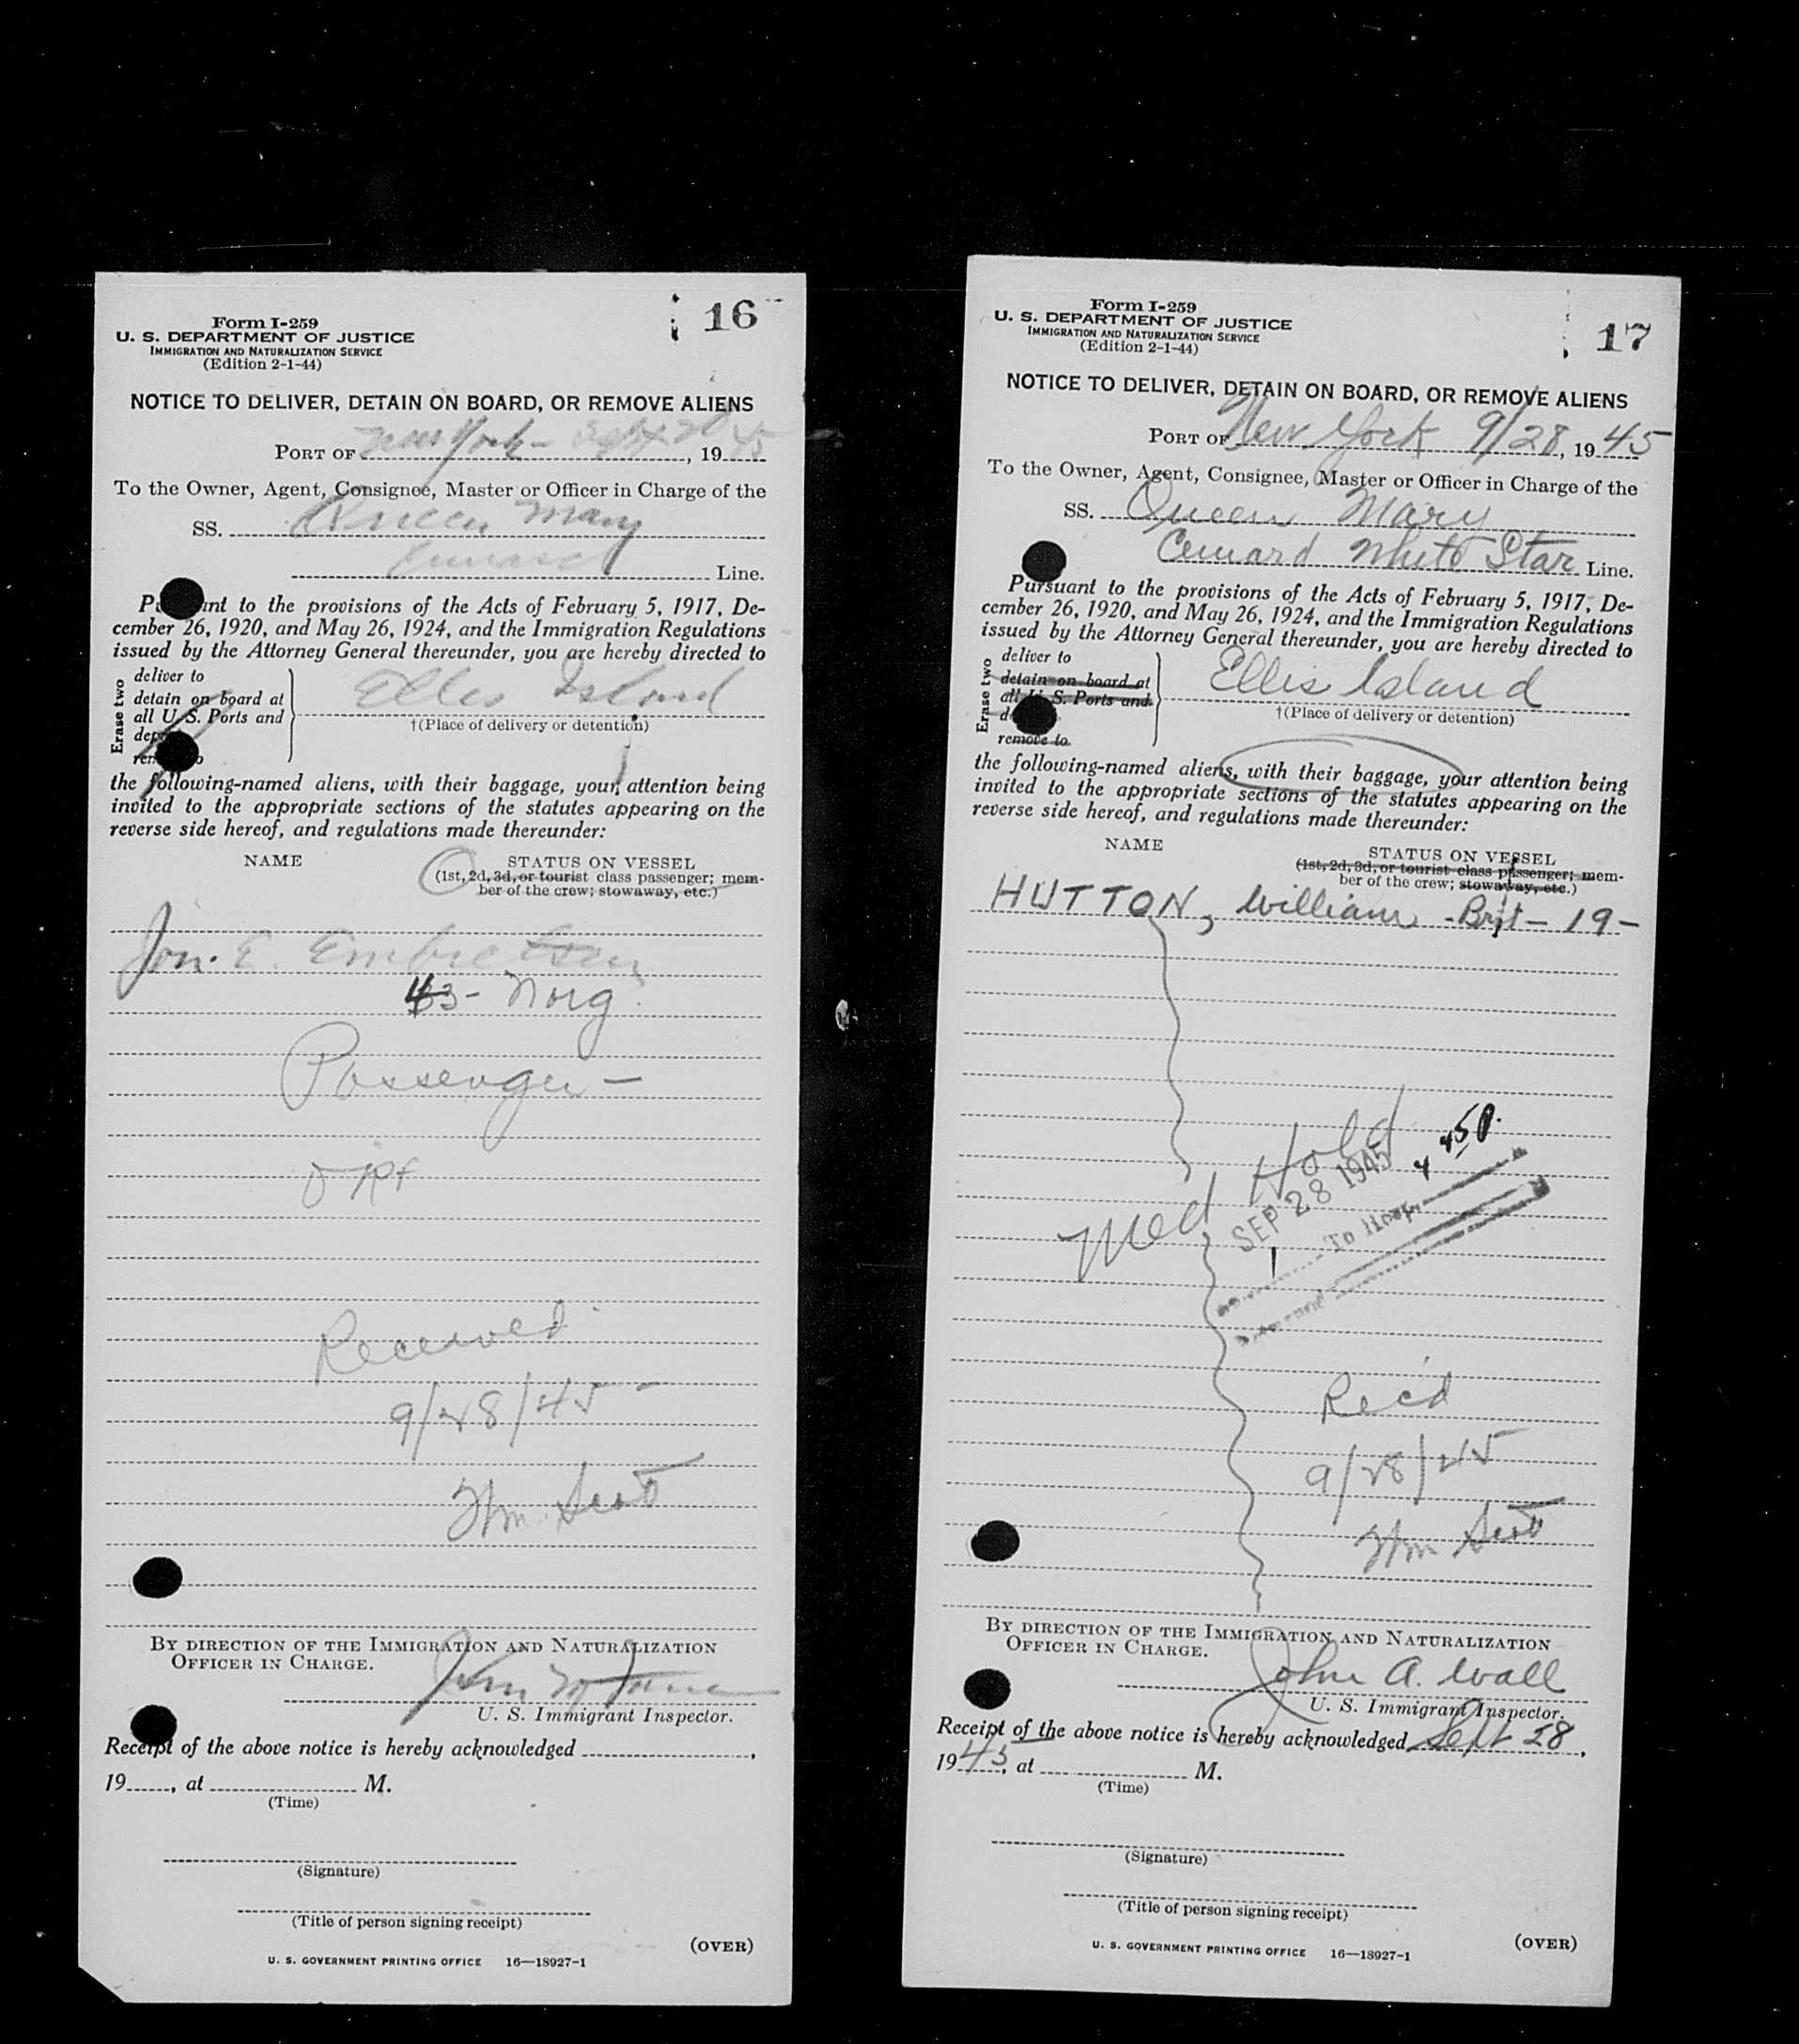 16
Form I-259
U. S. DEPARTMENT OF JUSTICE
IMMIGRATION AND NATURALIZATION SERVICE
(Edition 2-1-44)
NOTICE TO DELIVER, DETAIN ON BOARD, OR REMOVE ALIENS
PORT OF New York - Sept , 19 45
To the Owner, Agent, Consignee, Master or Officer in Charge of the
SS. Queen Mary
Cunard Line.
to the provisions of the Acts of February 5, 1917, De-
cember 26, 1920, and May 26, 1924, and the Immigration Regulations
issued by the Attorney General thereunder, you are hereby directed to
Erase two
deliver to
detain on board at
all U. S. Ports and
Ellis Island
†(Place of delivery or detention)
the following-named aliens, with their baggage, your attention being
invited to the appropriate sections of the statutes appearing on the
reverse side hereof, and regulations made thereunder:
NAME STATUS ON VESSEL
(1st, 2d, 3d, or tourist class passenger; mem-
ber of the crew; stowaway, etc.)
Jon. E.
43 - Norg.
Passenger -
Received
9/28/45 -
Wm. Scott
BY DIRECTION OF THE IMMIGRATION AND NATURALIZATION
OFFICER IN CHARGE.
U. S. Immigrant Inspector.
Receipt of the above notice is hereby acknowledged ,
19 , at M.
(Time)
(Signature)
(Title of person signing receipt)
(OVER)
U. S. GOVERNMENT PRINTING OFFICE 16—18927-1
17
Form I-259
U. S. DEPARTMENT OF JUSTICE
IMMIGRATION AND NATURALIZATION SERVICE
(Edition 2-1-44)
NOTICE TO DELIVER, DETAIN ON BOARD, OR REMOVE ALIENS
PORT OF New York 9/28, 19 45
To the Owner, Agent, Consignee, Master or Officer in Charge of the
SS. Queen Mary
Cunard White Star Line.
Pursuant to the provisions of the Acts of February 5, 1917, De-
cember 26, 1920, and May 26, 1924, and the Immigration Regulations
issued by the Attorney General thereunder, you are hereby directed to
Erase two
deliver to
detain on board at
all U. S. Ports and
remove to
Ellis Island
†(Place of delivery or detention)
the following-named aliens, with their baggage, your attention being
invited to the appropriate sections of the statutes appearing on the
reverse side hereof, and regulations made thereunder:
NAME STATUS ON VESSEL
(1st, 2d, 3d, or tourist class passenger; mem-
ber of the crew; stowaway, etc.)
HUTTON, William - Brit - 19 -
Med Hold
SEP 28 1945
To Hosp.
Rec'd
9/28/45
Wm Scott
BY DIRECTION OF THE IMMIGRATION AND NATURALIZATION
OFFICER IN CHARGE.
John A. Wall
U. S. Immigrant Inspector.
Receipt of the above notice is hereby acknowledged Sept 28,
19 45, at M.
(Time)
(Signature)
(Title of person signing receipt)
(OVER)
U. S. GOVERNMENT PRINTING OFFICE 16—18927-1